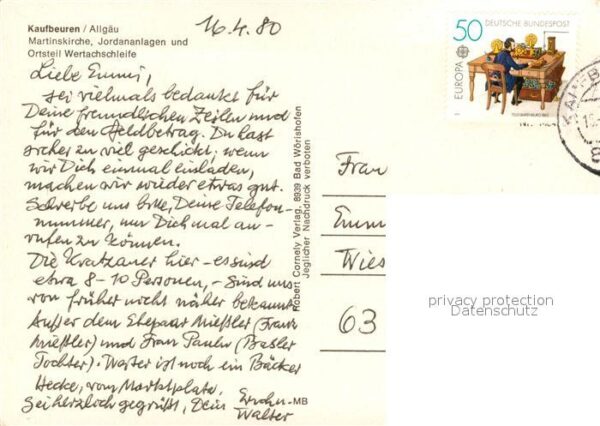 Kaufbeuren / Allgäu
Martinskirche, Jordananlagen und
Ortsteil Wertachschleife
16.4.80
Liebe Emmi,
sei vielmals bedankt für
Deine freundlichen Zeilen und
für den Geldbetrag. Du hast
sicher zu viel geschickt; wenn
wir Dich einmal einladen,
machen wir wieder etwas gut.
Schreibe uns bitte, Deine Telefon-
nummer, um Dich mal an-
rufen zu können.
Die Kratzauer hier - es sind
etwa 8-10 Personen, - sind uns
von früher nicht näher bekannt
Außer dem Ehepaar Mießler (Franz
Mießler) und Frau Pauln (Basler
Tochter). Weiter ist noch ein Bäcker
Hecke, vom Marktplatz.
Sei herzlich gegrüßt, Dein
Walter
MB
Robert Cornely Verlag, 8939 Bad Wörishofen
Jeglicher Nachdruck verboten
50
DEUTSCHE BUNDESPOST
EUROPA
KAUFB
Frau
Emm
Wies
63
privacy protection
Datenschutz